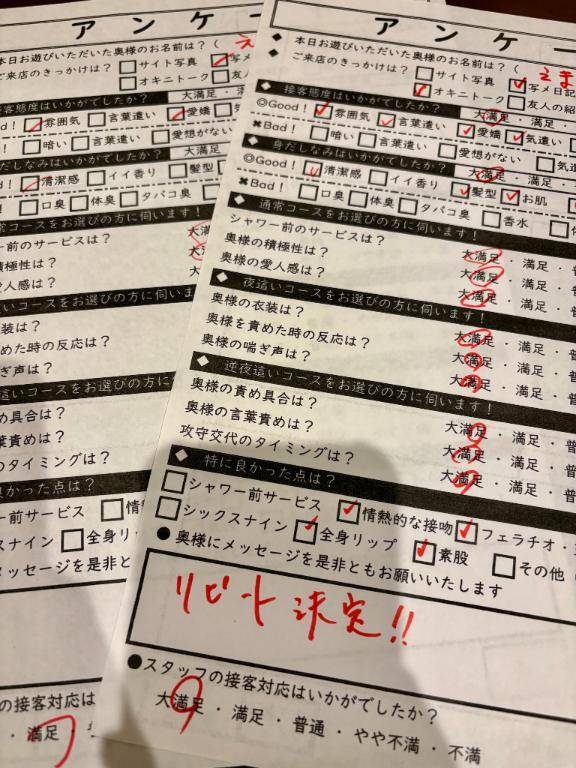 アンケー
◆ 本日お遊びいただいた奥様のお名前は？（ えま
◆ ご来店のきっかけは？ サイト写真 写メ日記
オキニトーク 友人の紹
◆ 接客態度はいかがでしたか？ 大満足・満足・
◎Good！ 雰囲気 言葉遣い 愛嬌 気遣い
✖Bad！ 暗い 言葉遣い 愛想がない 気遣
◆ 身だしなみはいかがでしたか？ 大満足・満足・
◎Good！ 清潔感 イイ香り 髪型 お肌
✖Bad！ 口臭 体臭 タバコ臭 香水
◆ 通常コースをお選びの方に伺います！
シャワー前のサービスは？ 大満足・満足・普
奥様の積極性は？ 大満足・満足・普
奥様の愛人感は？ 大満足・満足・普
◆ 夜這いコースをお選びの方に伺います！
奥様の衣装は？ 大満足・満足・普
奥様を責めた時の反応は？ 大満足・満足・普
奥様の喘ぎ声は？ 大満足・満足・普
◆ 逆夜這いコースをお選びの方に伺います！
奥様の責め具合は？ 大満足・満足・普
奥様の言葉責めは？ 大満足・満足・普
攻守交代のタイミングは？ 大満足・満足・普
◆ 特に良かった点は？
シャワー前サービス 情熱的な接吻 フェラチオ・
シックスナイン 全身リップ 素股 その他（
● 奥様にメッセージを是非ともお願いいたします
リピート決定!!
●スタッフの接客対応はいかがでしたか？
大満足・満足・普通・やや不満・不満
アンケー
本日お遊びいただいた奥様のお名前は？（ え
ご来店のきっかけは？ サイト写真 写メ
オキニトーク 友人
接客態度はいかがでしたか？ 大満足・満
d！ 雰囲気 言葉遣い 愛嬌 気
！ 暗い 言葉遣い 愛想がない
だしなみはいかがでしたか？ 大満足
！ 清潔感 イイ香り 髪型
！ 口臭 体臭 タバコ臭
常コースをお選びの方に伺います！
ー前のサービスは？ 大満
積極性は？ 大
愛人感は？ 大
這いコースをお選びの方に伺いま
装は？
めた時の反応は？
ぎ声は？
這いコースをお選びの方に
め具合は？
葉責めは？
のタイミングは？
良かった点は？
ー前サービス 情
スナイン 全身リ
メッセージを是非とも
の接客対応は
・満足・